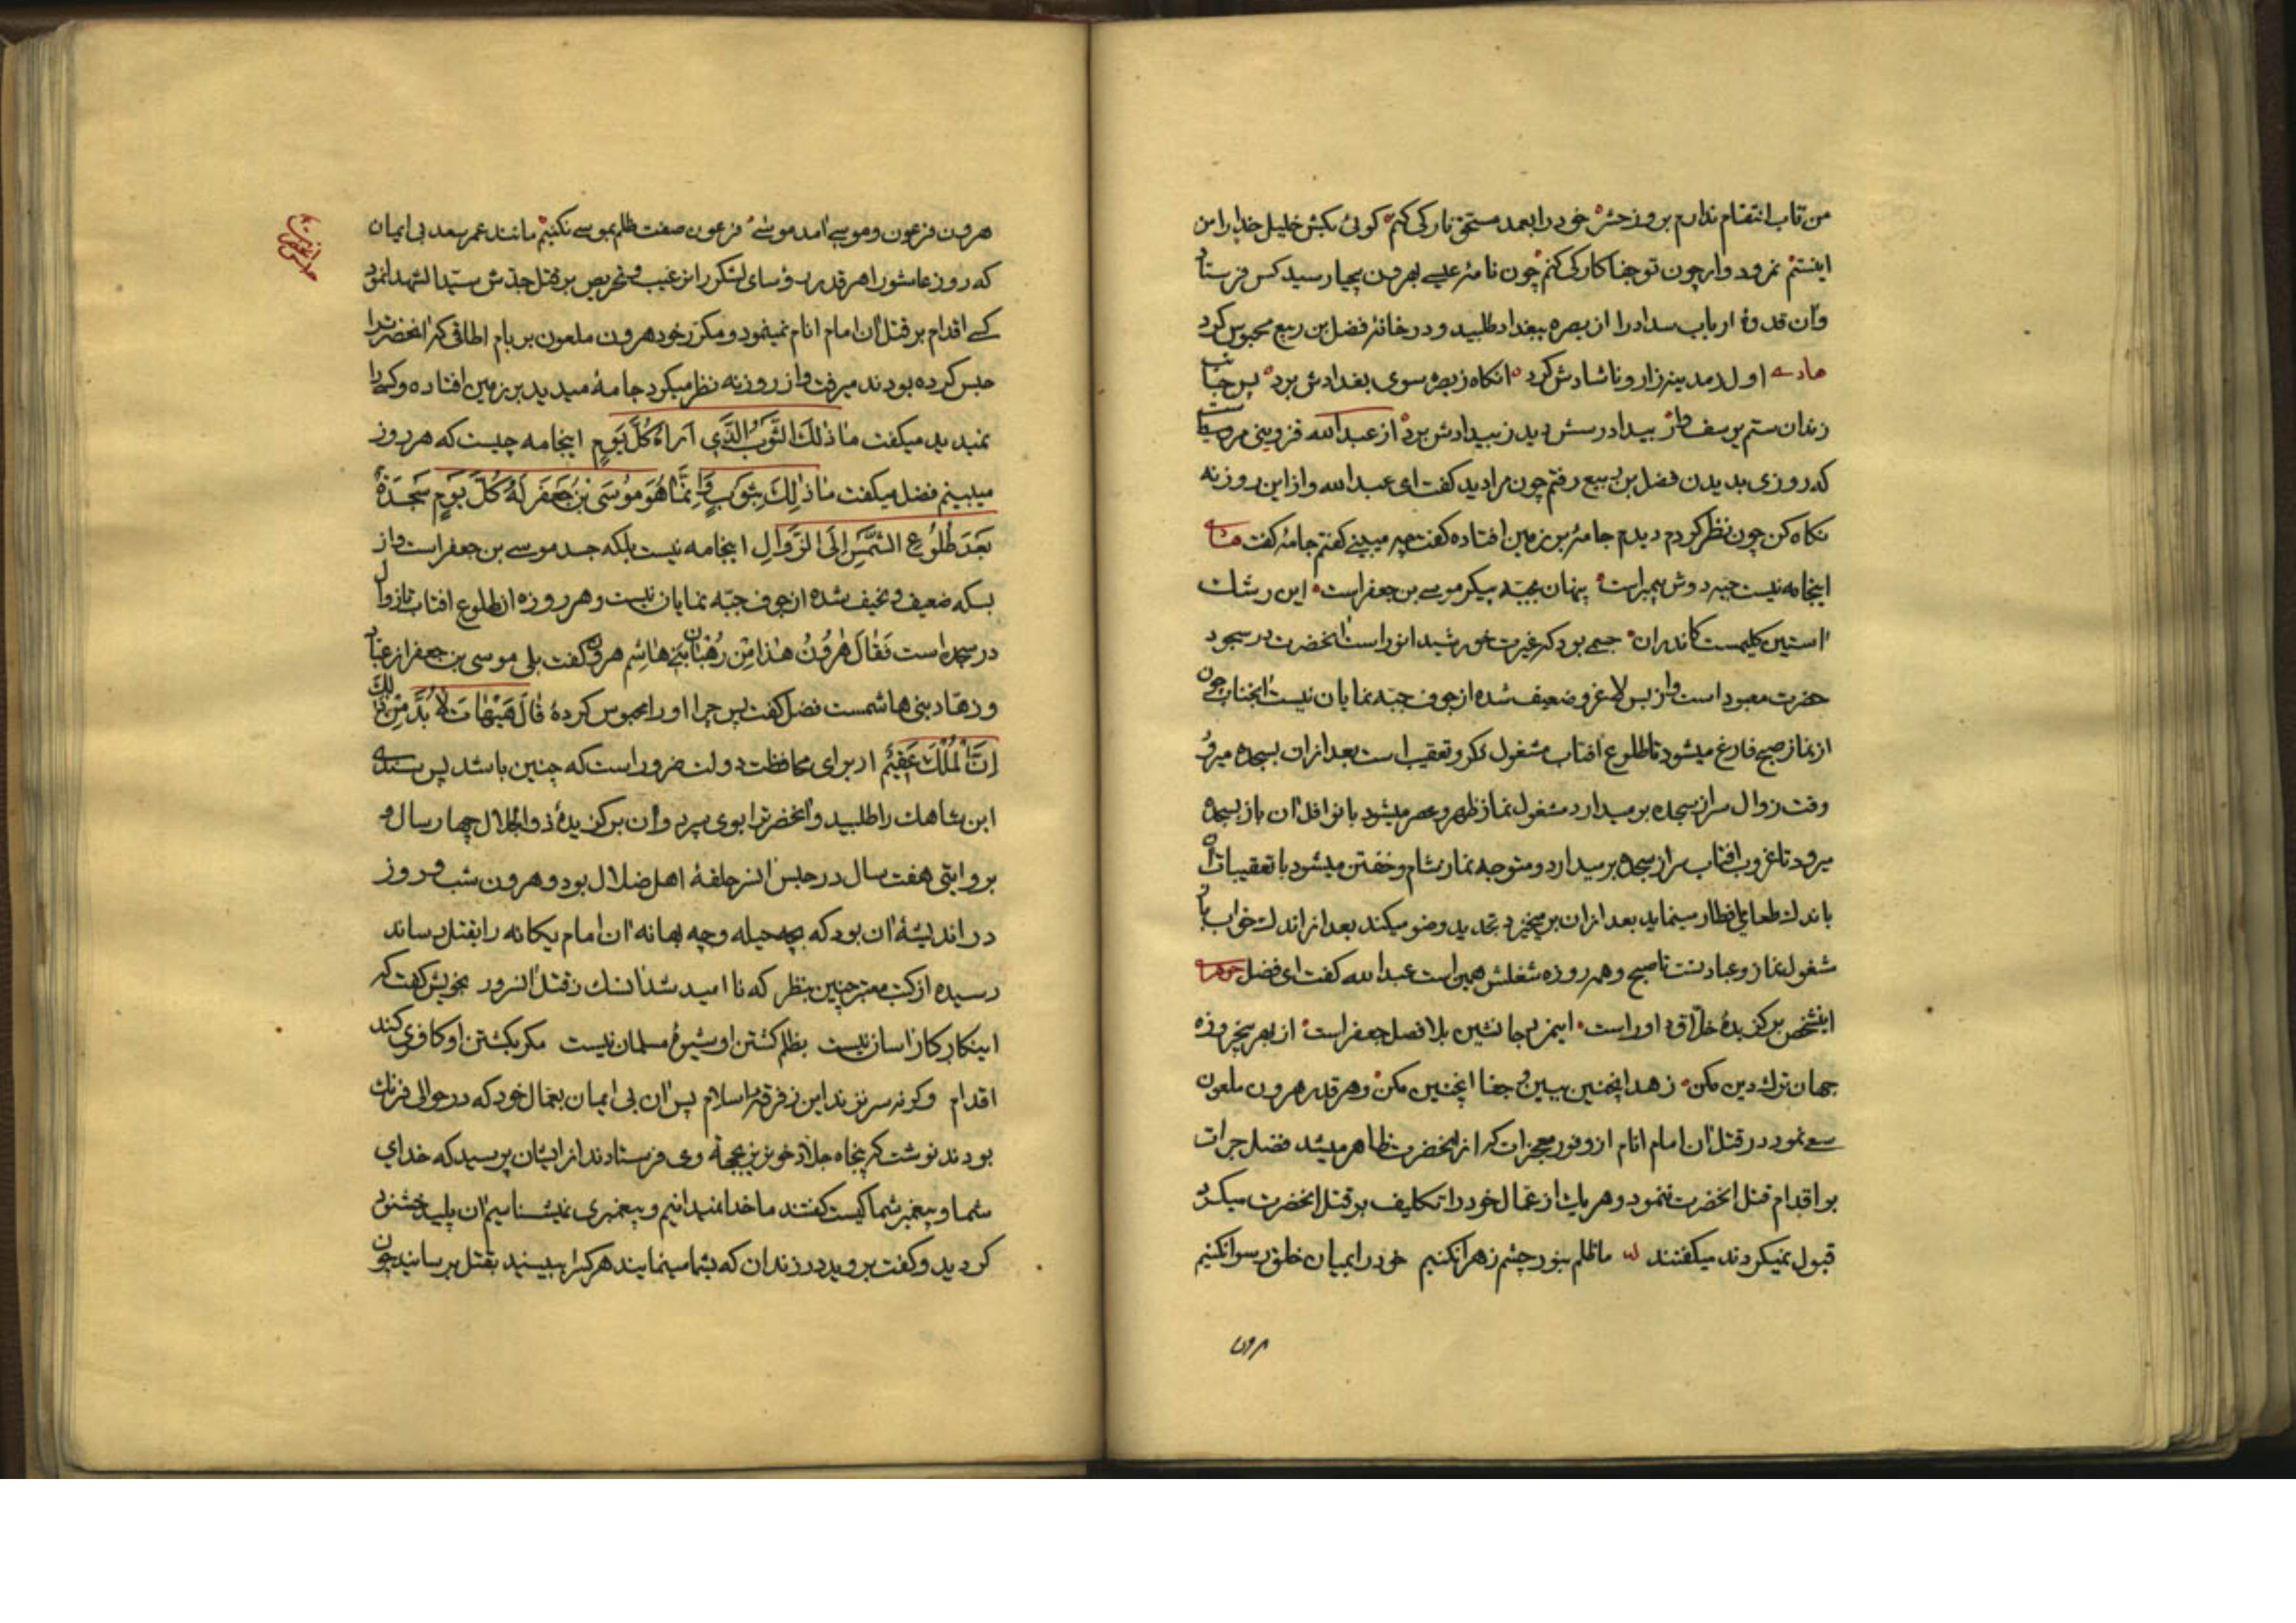 من تاب انتقام ندارم بروز حشر خود را بعمد مستحق نار کی کنم کوئی بکش خلیل خدا را من
اینستم نمرود وار چون تو جفا کار کی کنم چون نامهٔ عیسے بهرون بیحیا رسید کس فرستاد
وآن قدوهٔ ارباب سداد را از بصره ببغداد طلبید و در خانهٔ فضل بن ربیع محبوس کرد
اول از مدینه زار و ناشادش کرد انکاه ز بصره سوی بغدادش برد پس
زندان ستم یوسف وار بیدادرسش دید ز بیدادش برد از عبدالله قزوینی مرویست
که روزی بدیدن فضل بن ربیع رفتم چون مرا دید کفت ای عبدالله واز این روزنه
نکاه کن چون نظر کردم دیدم جامهٔ بر زمین افتاده کفت چه میبینے کفتم جامهٔ کفت
اینجامه نیست جبه دوش پیمبر است پنهان بجبه پیکر موسے بن جعفر است این رشك
استین کلیمست کاندران جسمے بود که غیرت خورشید انور است انحضرت در سجود
حضرت معبود است واز بس لاغر و ضعیف شده از جوف جبه نمایان نیست انجناب چون
از نماز صبح فارغ میشود تا طلوع افتاب مشغول ذکر و تعقیب است بعد ازان بسجده میرود
وقت زوال سر از سجده برمیدارد مشغول نماز ظهر و عصر میشود با نوافل ان باز بسجده
میرود تا غروب افتاب سر از سجده برمیدارد و متوجه نماز شام و خفتن میشود با تعقیبات
باندك طعامی افطار مینماید بعد ازان برمیخیزد تجدید وضو میکند بعد از اندك خواب باز
مشغول نماز و عبادتست تا صبح و همه روزه شغلش همین است عبدالله کفت ای فضل
اینشخص برکزیدهٔ خلاق داور است اینمرد جانشین بلافصل جعفر است از بهر پنجروزه
جهان ترك دین مکن زهد اینچنین ببین و جفا اینچنین مکن وهر قدر هرون ملعون
سعے نمود در قتل ان امام انام از وفور معجزات که از انحضرت ظاهر میشد فضل جرات
بر اقدام قتل انحضرت ننمود وهر یك از عمال خود را تکلیف بر قتل انحضرت میکرد
قبول نمیکردند میکفتند ما ظلم بنور چشم زهرا نکنیم خود را بمیان خلق رسوا نکنیم
هرون
هرون فرعون و موسے امد موسے فرعون صفت ظلم بموسے نکنیم مانند عمر سعد بی ایمان
که روز عاشورا هر قدر رؤسای لشکر را ترغیب و تحریص بر قتل جدش سید الشهدا نمود
کسے اقدام بر قتل ان امام انام نمینمود و مکرر خود هرون ملعون بر بام اطاقی که انحضرترا
حبس کرده بودند میرفت واز روزنه نظر میکرد جامهٔ میدید بر زمین افتاده و کسی را
نمیدید میکفت ما ذلك الثوب الذی اراه کل یوم اینجامه چیست که هر روز
میبینم فضل میکفت ما ذلك بثوب وانما هو موسی بن جعفر له کل یوم سجدة
بعد طلوع الشمس الی الزوال اینجامه نیست بلکه جسد موسے بن جعفر است واز
بسکه ضعیف و نحیف شده از جوف جبه نمایان نیست وهر روزه از طلوع افتاب تا زوال
در سجده است فقال هرون هذا من رهبان بنی هاشم هرون کفت بلی موسی بن جعفر از عباد
وزهاد بنی هاشمست فضل کفت پس چرا او را محبوس کردهٔ قال هیهات لا بد من ذلك
ان الملك عقیم از برای محافظت دولت ضرور است که چنین باشد پس سندے
ابن شاهك را طلبید وانحضرترا بوی سپرد وان برکزیدهٔ ذوالجلال چهار سال و
بروایتی هفت سال در حبس انسرحلقهٔ اهل ضلال بود و هرون شب و روز
در اندیشهٔ ان بود که بچه حیله وچه بهانه ان امام یکانه را بقتل رساند
رسیده از کتب معتبر چنین بنظر که ناامید شد انسك ز قتل انسرور بخویش کفت که
اینکار کار اسان نیست بظلم کشتن او شیوهٔ مسلمان نیست مکر بکشتن او کافری کند
اقدام وکرنه سر نزند این ز فرقهٔ اسلام پس ان بی ایمان بعمال خود که در حوالی فرنك
بودند نوشت که پنجاه جلاد خونریز بجههٔ وی فرستادند از ایشان پرسید که خدای
شما و پیغمبر شما کیست کفتند ما خدا نمیدانیم و پیغمبری نمیشناسیم ان پلید خشنود
کردید و کفت بروید در زندان که بشما مینمایند هر کرا ببینید بقتل برسانید چون